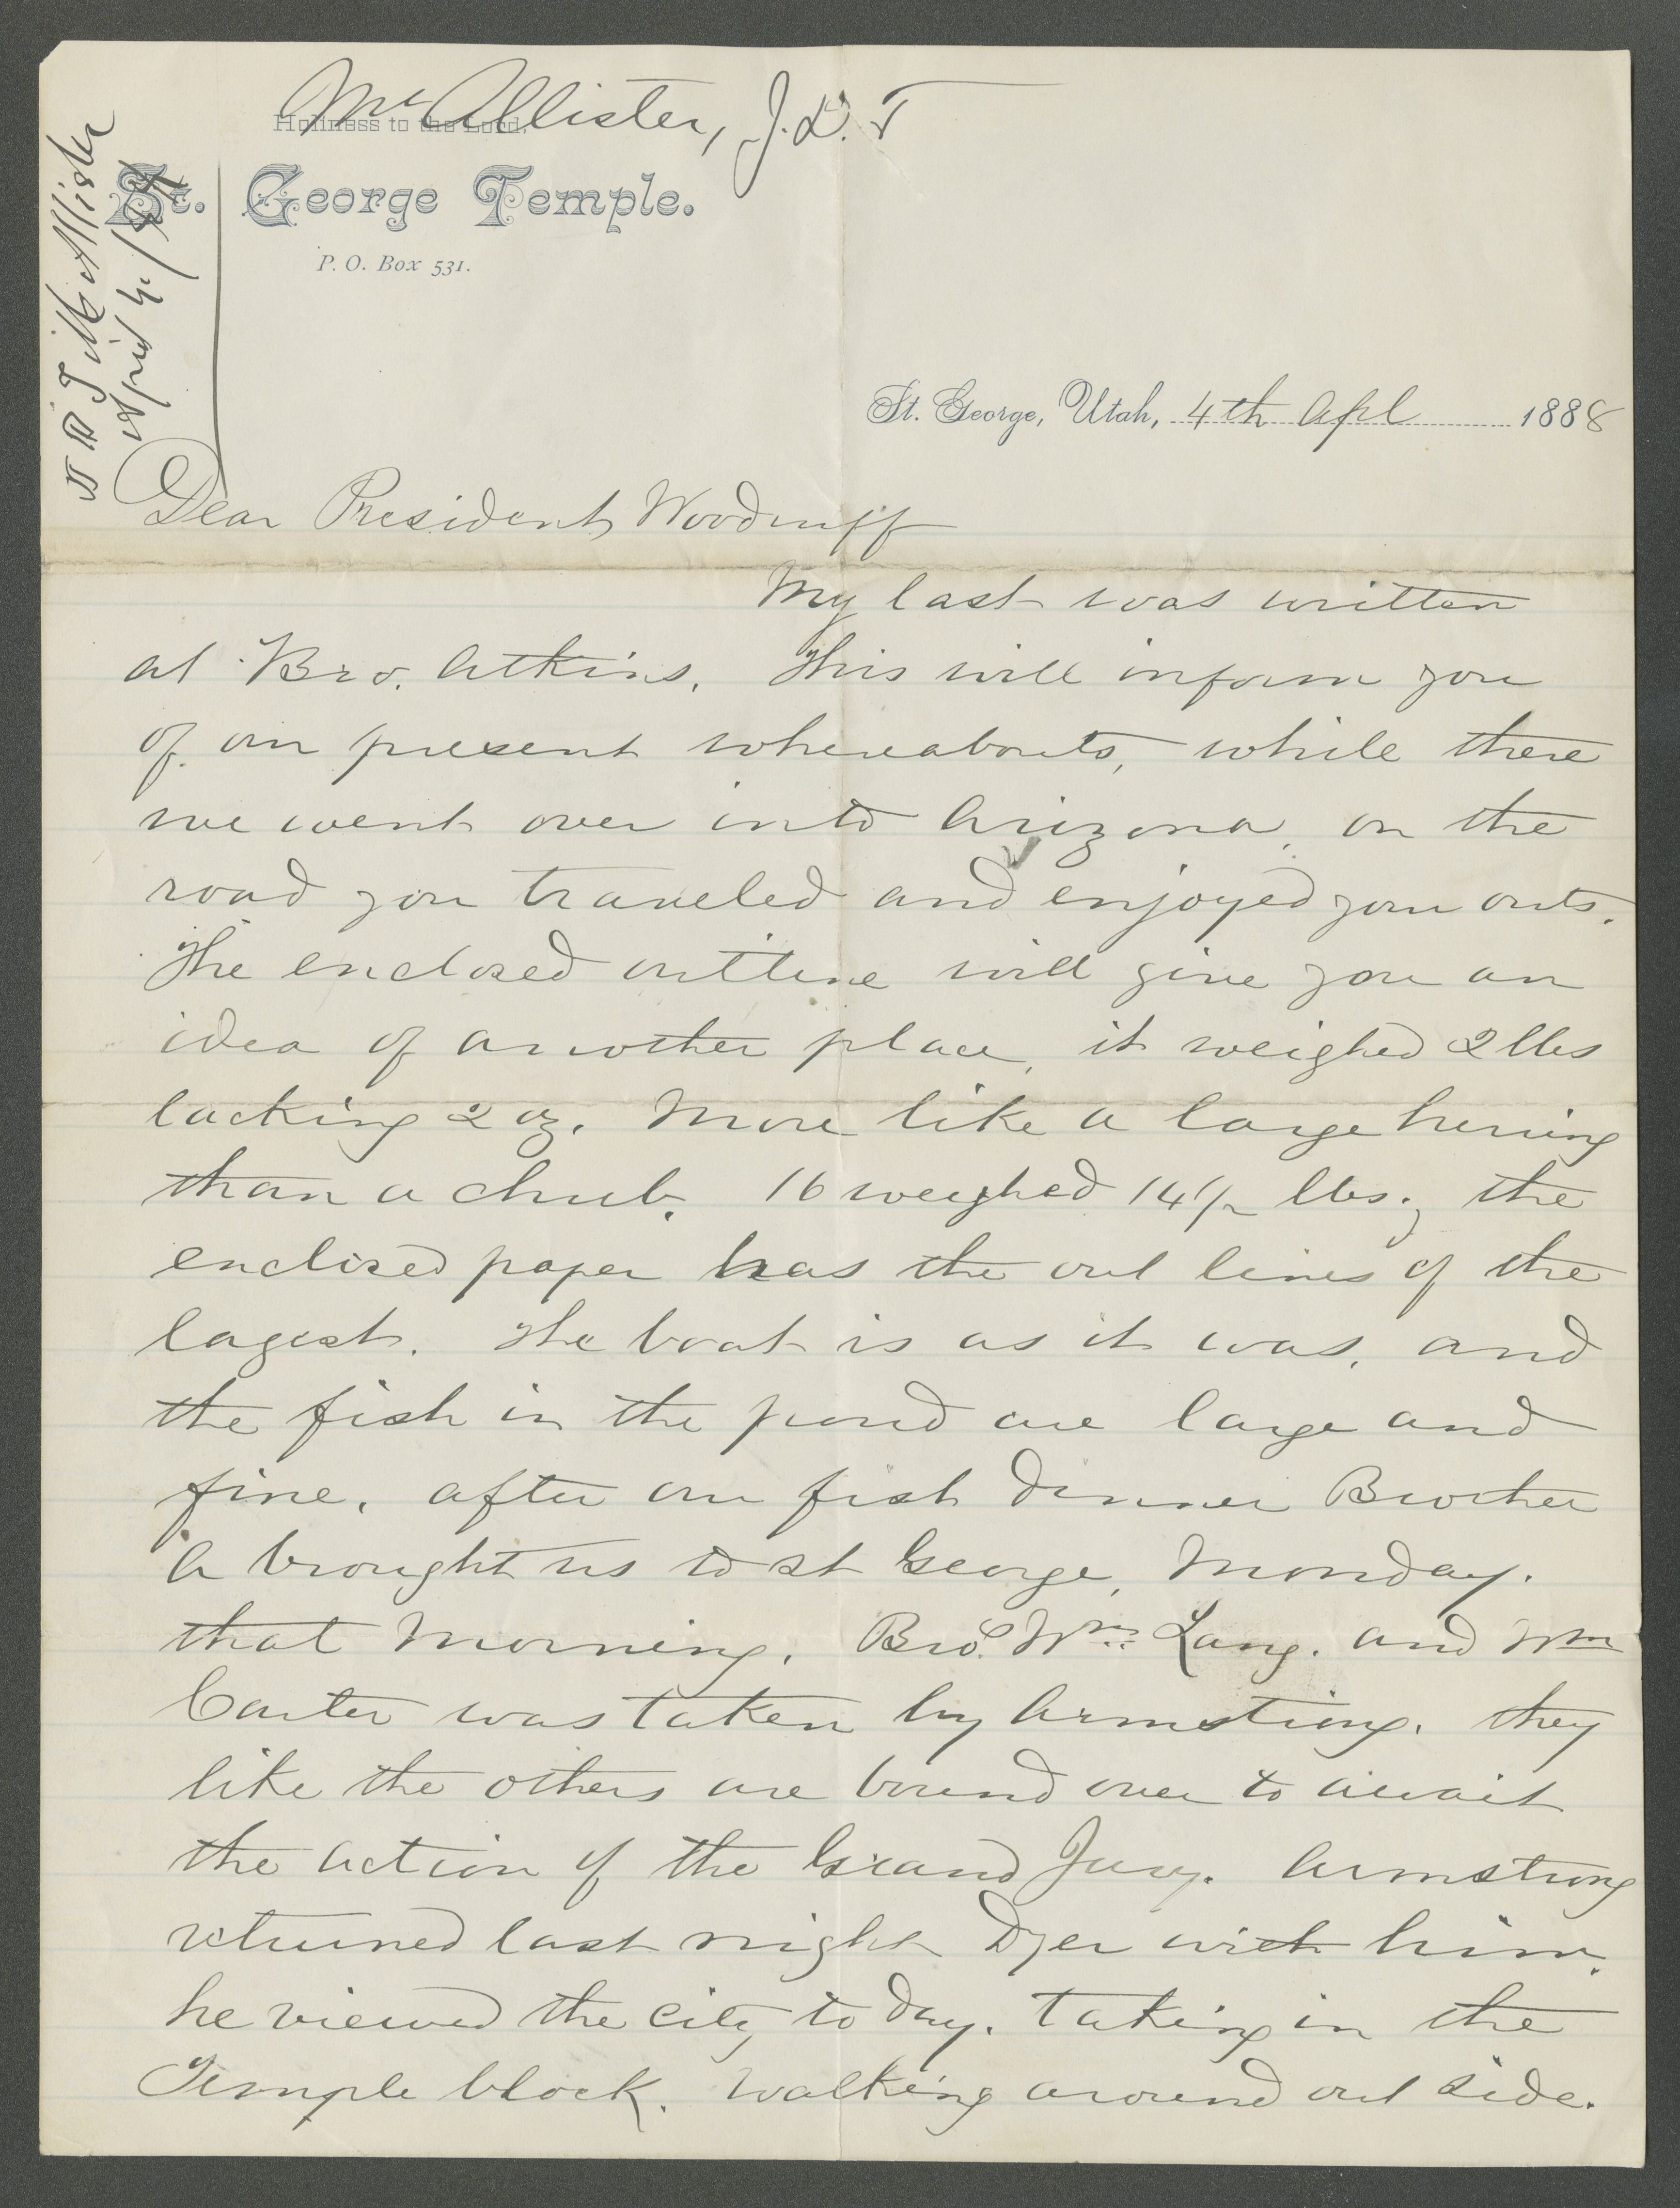 McAllister, J. D. T
Holiness to the Lord.
St. George Temple.
P. O. Box 531.
J D T McAllister
April 4/88
St. George, Utah, 4th Apl 1888
Dear President Woodruff
My last was written
at Bro. Atkins. This will inform you
of our present whereabouts, while there
we went over into Arizona, on the
road you traveled and enjoyed your outs.
The enclosed outline will give you an
idea of another place, it weighed 2 lbs
lacking 2 oz. More like a large herring
than a chub. 16 weighed 14 1/2 lbs., the
enclosed paper has the out lines of the
lagest. The boat is as it was, and
the fish in the pond are large and
fine, after our fish dinner Brother
A brought us to St George, Monday.
that morning, Bros. Wm. Lang. and Wm
Carter was taken by Armstrong. they
like the others are bound over to await
the action of the Grand Jury. Armstrong
returned last night Dyer with him.
he viewed the city to day. taking in the
Temple block. walking around out side.